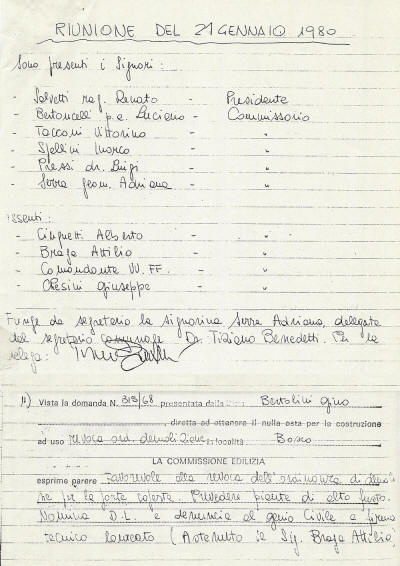 RIUNIONE DEL 21 GENNAIO 1980
Sono presenti i Signori:
- Salvetti rag. Renato - Presidente
- Bertoncelli p.e. Luciano - Commissario
- Tacconi Vittorino - "
- Stellini Marco - "
- Pressi dr. Luigi - "
- Serra geom. Adriana - "
ssenti:
- Cinquetti Alberto - "
- Braga Attilio - "
- Comandante VV. FF. - "
- Olesini Giuseppe - "
Funge da segretario la Signorina Serra Adriana, delegata
dal segretario comunale Dr. Tiziano Benedetti. Per la
elega:
11) Vista la domanda N. 313/68 presentata Bertolini Gino
, diretta ad ottenere il nulla osta per la costruzione
ad uso revoca ord. demolizione località Bosco
LA COMMISSIONE EDILIZIA
esprime parere Favorevole alla revoca dell'ordinanza di
ne per la parte coperta. Prevedere piante di alto fusto.
Nomina D.L. e denuncia al genio Civile a firma
tecnico laureato (Astenuto il Sig. Braga Attilio